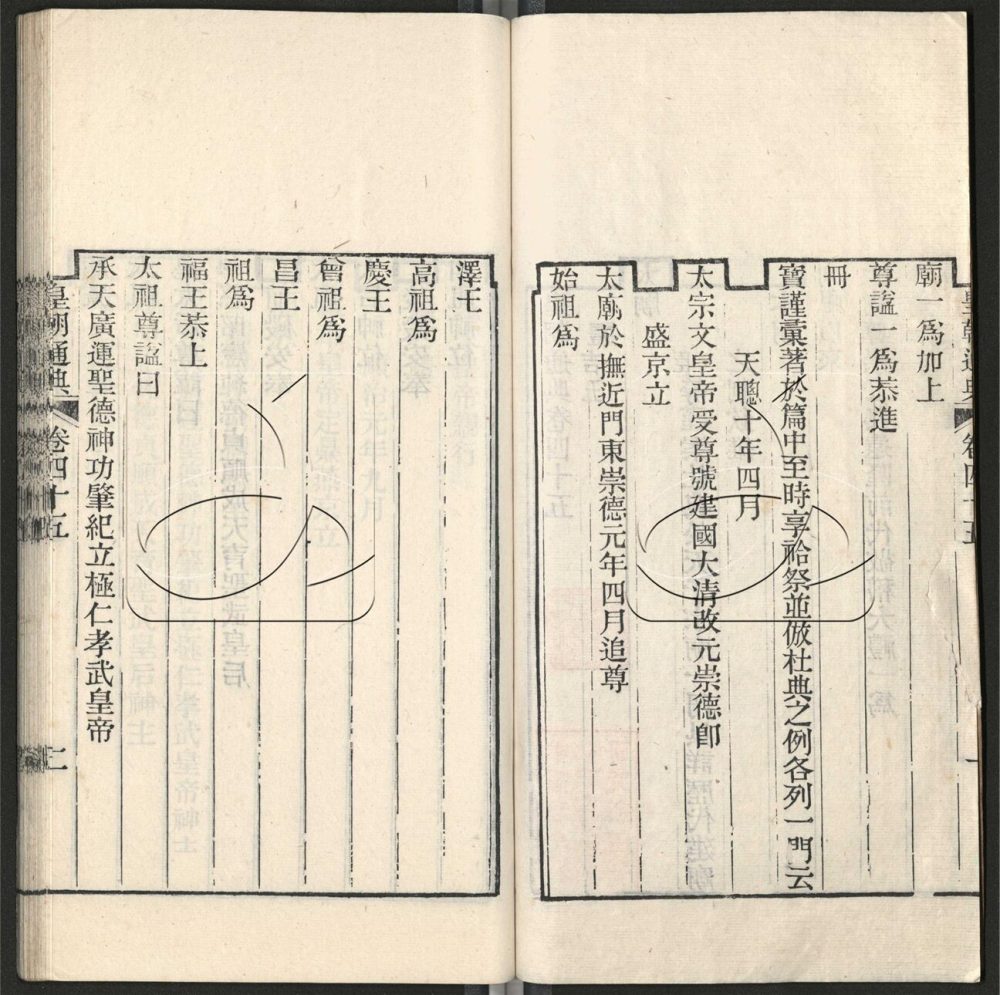 皇朝通典 卷四十五 一
廟一爲加上
尊謚一爲恭進
冊
寶謹彙著於篇中至時享祫祭並倣杜典之例各列一門云
天聰十年四月
太宗文皇帝受尊號建國大清改元崇德卽
盛京立
太廟於撫近門東崇德元年四月追尊
始祖爲
澤王
高祖爲
慶王
曾祖爲
昌王
祖爲
福王恭上
太祖尊謚曰
承天廣運聖德神功肇紀立極仁孝武皇帝
皇朝通典 卷四十五 二